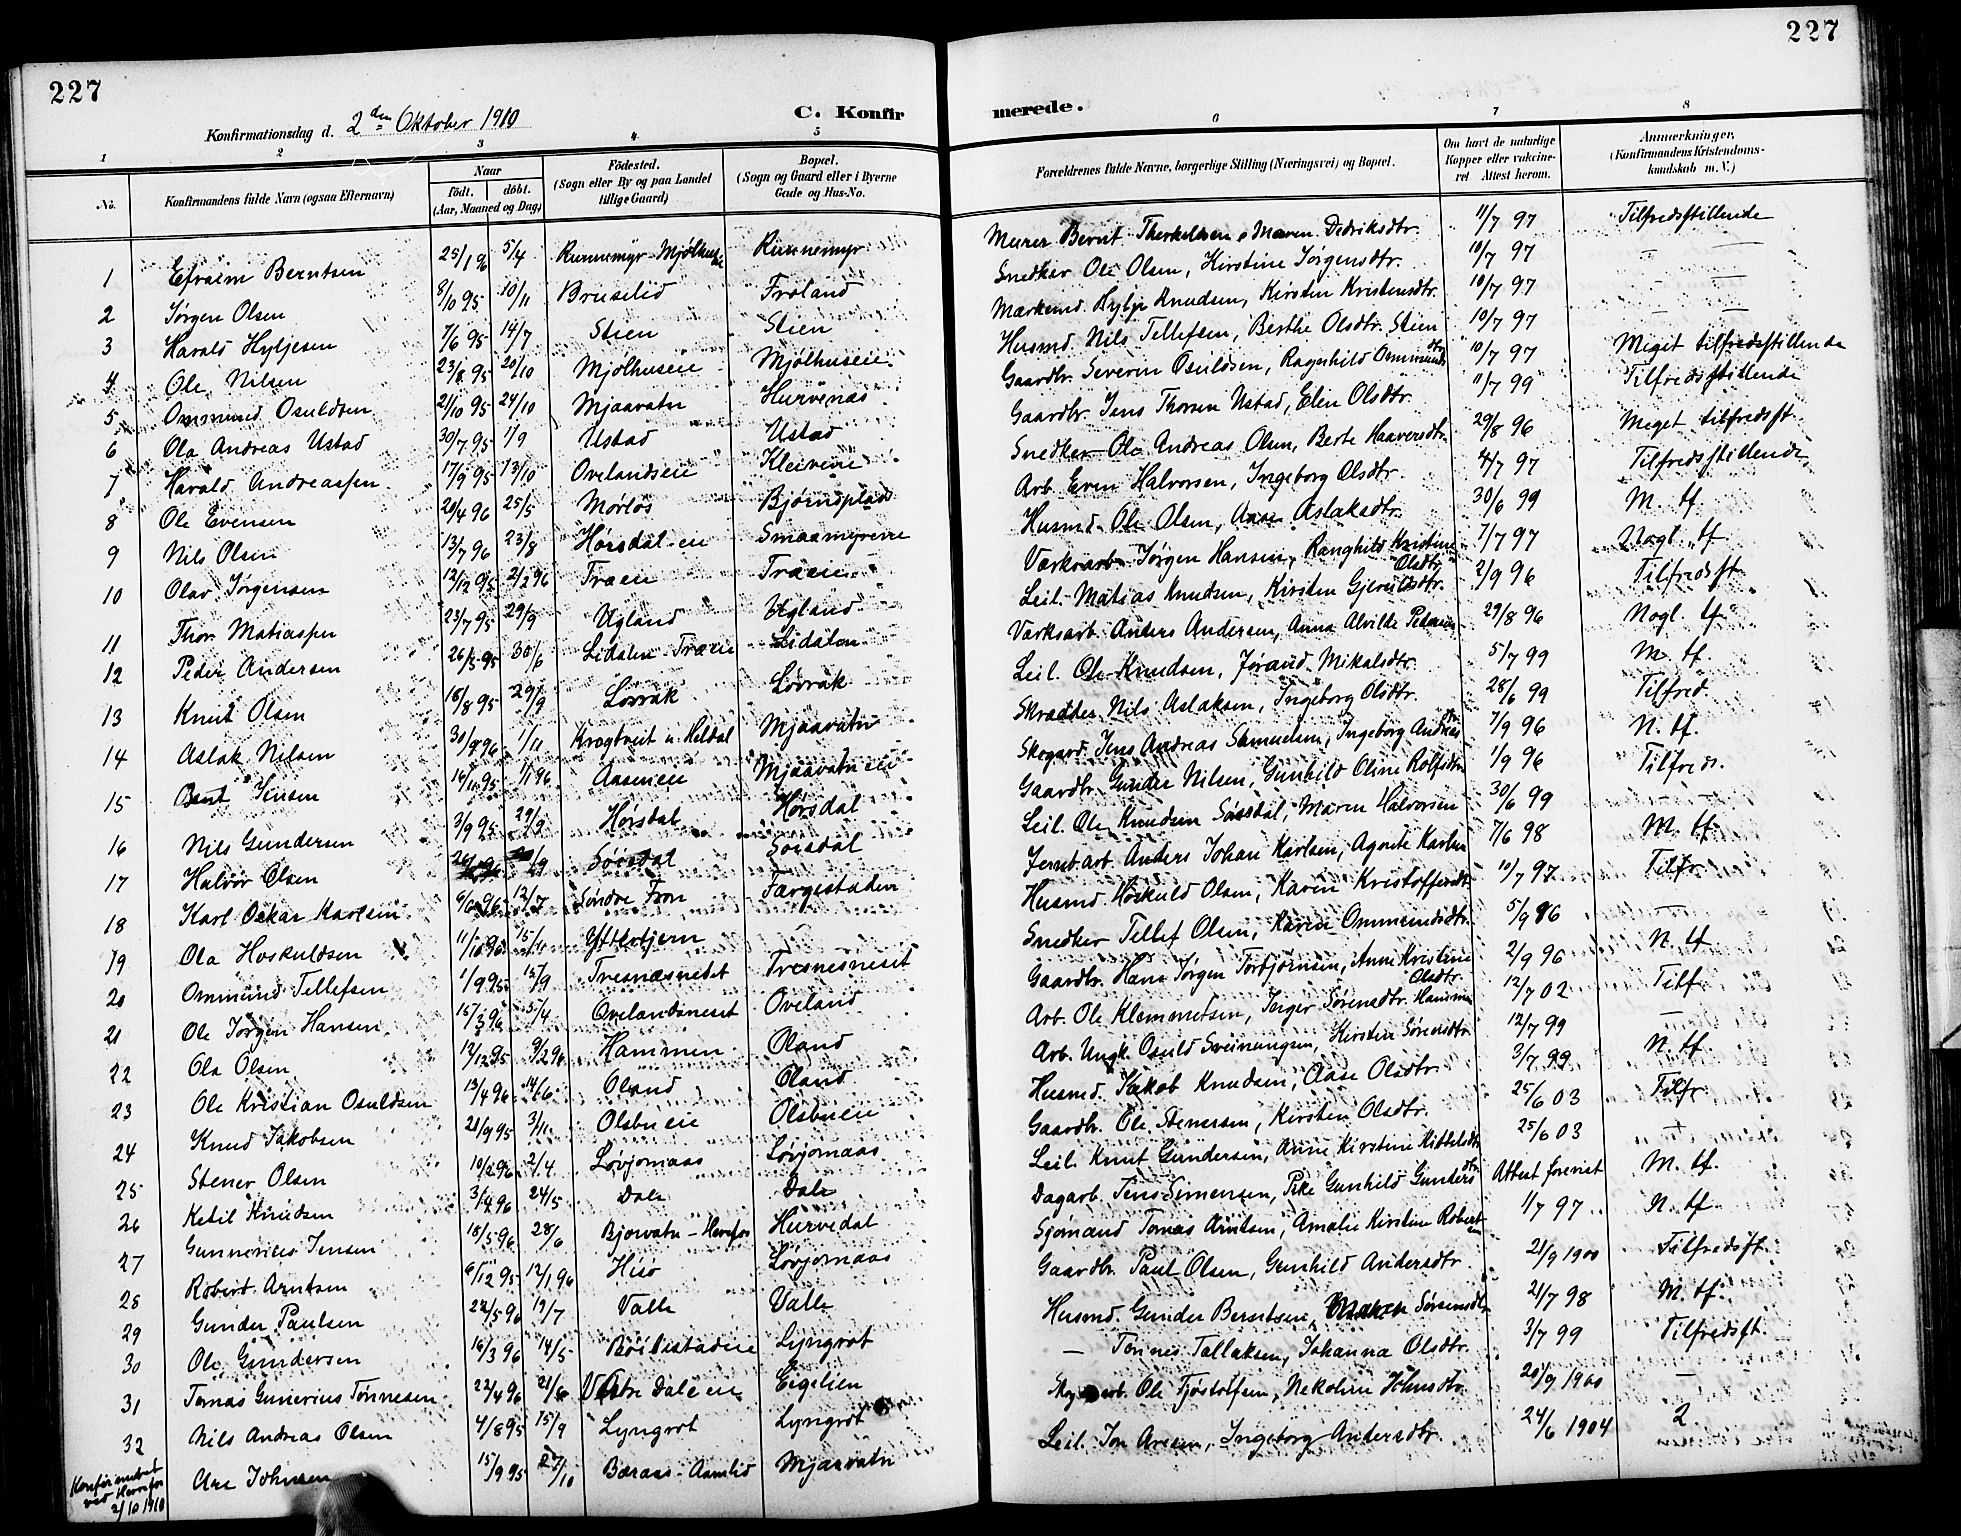 227
227
Konfirmationsdag d. 2den Oktober 1910
C. Konfirmerede.
1 2 3 4 5 6 7 8
No. Konfirmandens fulde Navn (ogsaa Efternavn) Naar födt. döbt. (Aar, Maaned og Dag) Födested. (Sogn eller By og paa Landet tillige Gaard) Bopæl. (Sogn og Gaard eller i Byerne Gade og Hus-No. Forældrenes fulde Navne, borgerlige Stilling (Næringsvei) og Bopæl. Om havt de naturlige Kopper eller vakcineret Attest herom. Anmerkninger, (Konfirmandens Kristendomskundskab m. V.)
1 Efraim Berntsen 25/1 96 5/4 Runnemyr Runnemyr Murer Bernt Therkelsen, Maren Dedriksdtr. 11/7 97 Tilfredsstillende
2 Jørgen Olsen 8/10 95 10/11 Bruselid Froland Snedker Ole Olsen, Kirstine Jørgensdtr. 10/7 97 —
3 Harald Hyljesen 7/6 95 14/7 Stien Stien Hylje Knudsen, Kirsten Kristensdtr. 10/7 97 —
4 Ole Nilsen 23/8 95 20/10 Mjølhuseie Mjølhuseie Husmd. Nils Tellefsen, Berthe Olsdtr. Stien 10/7 97 —
5 Ommund Osuldsen 21/10 95 24/10 Mjaavatn Hurvenas Gaardbr. Severin Osuldsen, Ragnhild Ommundsdtr 10/7 97 Meget tilfredsstillende
6 Ola Andreas Ustad 30/7 95 1/9 Ustad Ustad Gaardbr. Jens Thorsen Ustad, Elen Olsdtr. 11/7 99 Tilfredsstillende
7 Harald Andreassen 17/9 95 13/10 Ovelandseie Kleiveie Snedker Ole Andreas Olsen, Berte Haaversdtr. 29/8 96 Meget tilfredsst.
8 Ole Evensen 20/4 96 25/5 Mørløs Bjørnsplads Arb. Even Halvorsen, Ingeborg Olsdtr. 4/7 97 Tilfredsstillende
9 Nils Olsen 13/7 96 23/8 Hørsdal-eie Smaamyreie Husmd. Ole Olsen, Aase Aslaksdtr. 30/6 99 M. tf.
10 Olav Jørgensen 12/12 95 2/2 96 Træeie Træeie Værksarb. Jørgen Hansen, Ranghild Kristine Olsdtr. 7/7 97 Nogl. tf.
11 Thor Matiassen 23/7 95 29/9 Ugland Ugland Leil. Matias Knudsen, Kirsten Gjeruldsdtr. 2/9 96 Tilfredsst.
12 Peder Andersen 26/5 95 30/6 Lidalen Træeie Lidalen Værksarb. Anders Andersen, Anna Alvilde Pedersen 29/8 96 Nogl. tf.
13 Knut Olsen 18/8 95 29/9 Løvrak Løvrak Leil. Ole Knudsen, Jørand Mikalsdtr. 5/7 99 M. tf.
14 Aslak Nilsen 1/11 Krogtveit i Hildal Mjaavatn Skrædder Nils Aslaksen, Ingeborg Olsdtr. 28/6 99 Tilfred.
15 Bent Jensen 16/11 95 1/1 96 Aaseneie Mjaavatn eie Jens Andreas Samuelsen, Ingeborg 7/9 96 N. tf.
16 Nils Gundersen 3/9 95 29/9 Hørsdal Hørsdal Gaardbr. Gunder Nilsen, Gunhild Oline Rolfsdtr 1/9 96 Tilfreds.
17 Halvor Olsen Søvsdal Søvsdal Leil. Ole Knudsen Søvsdal, Maren Halvorsen 30/6 99 —
18 Karl Oskar Karlsen 6/6 96 12/7 Søndre Fron Færgestaden Jernbarb. Anders Johan Karlsen, Agnete Karlsen 7/6 98 M. tf.
19 Ola Hoskuldsen 11/10 96 15/11 Ytterbjern — Husmd Høskuld Olsen, Karen Kristoffersdtr 10/7 97 Tilfr.
20 Ommund Tellefsen 1/9 95 15/9 Tresnæsnedet Tresnesneset Snedker Tellef Olsen, Karen Ommundsdtr. 5/9 96 —
21 Ole Jørgen Hansen 15/3 96 5/4 Ovelandsneset Oveland Gaardbr. Hans Jørgen Torbjørnsen, Anne Kirstine Olsdtr. 2/9 96 N. tf
22 Ola Olsen 12/12 95 9/2 96 Hammen Øland Arb. Ole Klemmetsen, Inger Sørensdtr. Hammen 12/7 02 Tilf.
23 Ole Kristian Osuldsen 13/4 96 14/6 Øland Øland Arb. Ungk. Osuld Sveinungsen, Kirsten Sørensdtr. 12/7 99 —
24 Knud Jakobsen 21/9 95 3/11 Olsbueie Olsbueie Husmd. Jakob Knudsen, Aase Olsdtr. 3/7 99 N. tf.
25 Stener Olsen 10/2 96 2/4 Løvjomaas Løvjomaas Gaardbr. Ole Stenersen, Kirsten Olsdtr. 25/6 03 Tilfr.
26 Ketil Knudsen 24/5 Dale Dale Leil. Knut Gundersen, Anne Kirstine Kittelsdtr. 25/6 03 —
27 Gunnerius Jensen 18/5 96 28/6 Bjorvatn - Herefos Hurvedal Dagarb. Jens Simensen, Gunhild Gundersdtr Attest forevist M. tf.
28 Robert Arntsen 6/12 95 12/1 96 Hisø Løvjomaas Sjømand Tomas Arntsen, Amalie Kirstine 1/7 97 N. tf
29 Gunder Paulsen 22/5 96 19/7 Valle Valle Gaardbr. Paul Olsen, Gunhild Andersdtr. 21/9 1900 Tilfredsst.
30 Ole Gundersen 16/3 96 14/5 Bøilestadeie Lyngrot Husmd. Gunder Berntsen, Maren Sørensdtr 21/7 98 M. tf.
31 Tomas Gunerius Tønnesen 22/4 96 21/6 Dale eie Eigelien — Tønnes Tallaksen, Johanna Olsdtr. 3/7 99 Tilfredsst.
32 Nils Andreas Olsen 4/8 95 15/9 Lyngrot Lyngrot Ole Fjøstolfsen, Nekoline Johnsdtr. 20/9 1900 —
Konfirmeret ved Herefos 2/10 1910 Are Johnsen 15/9 95 27/10 Baraas - Aamlid Mjaavatn Leil. Jon Aresen, Ingeborg Andersdtr. 24/6 1904 2.